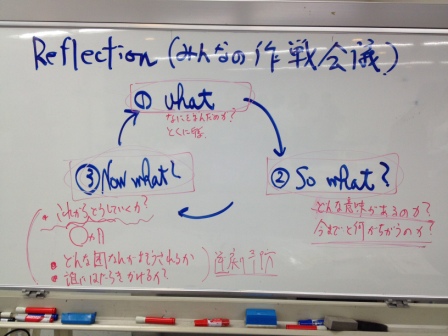 Reflection (みんなの作戦会議)
① what
なにをまなんだのか?
とくに
② So what?
どんな意味があるのか?
今までと何がちがうのか?
③ Now what?
・これからどうしていくか?
・どんな困なんが
・誰にはたらきかけるか?